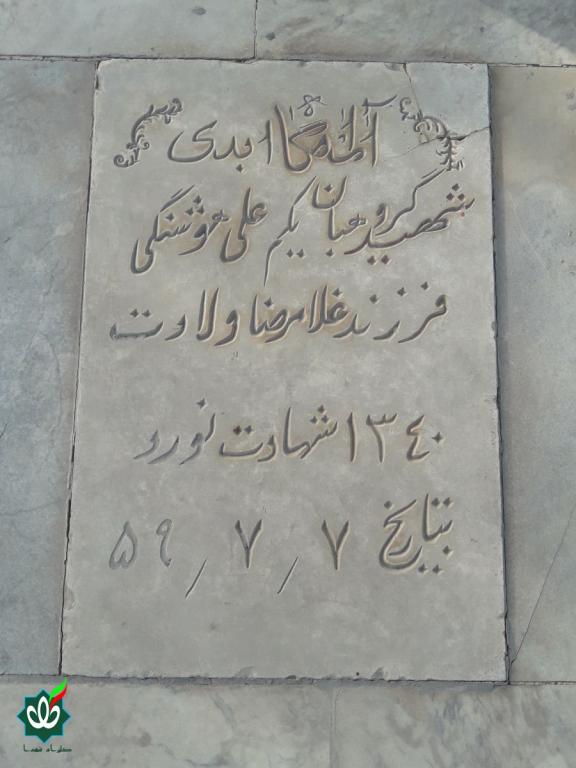 آرامگاه ابدی
شهید گروهبان یکم علی هوشنگی
فرزند غلامرضا ولادت
۱۳۴۰ شهادت نورد
بتاریخ ۷ / ۷ / ۵۹